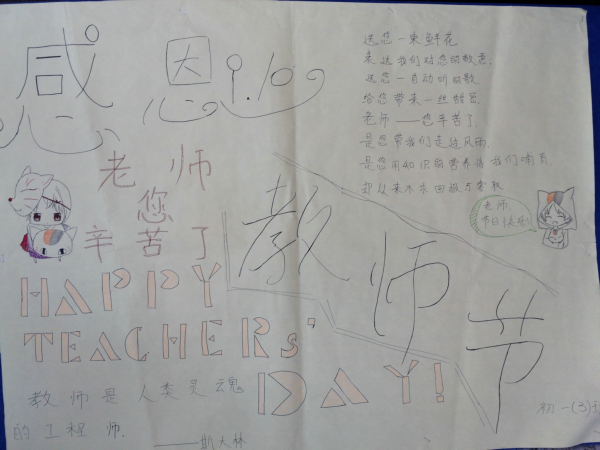 感恩 9.10
送您一束鲜花
表达我们对您的敬意.
送您一首动听的歌
给您带来一丝甜蜜.
老师——您辛苦了
是您带我们走过风雨.
是您用知识的营养将我们哺育
却从来不求回报与索取
老师
您
辛苦了
教师节
老师,
节日快乐!
HAPPY
TEACHERs'
DAY!
教师是人类灵魂
的工程师.
——斯大林
初一(3)班